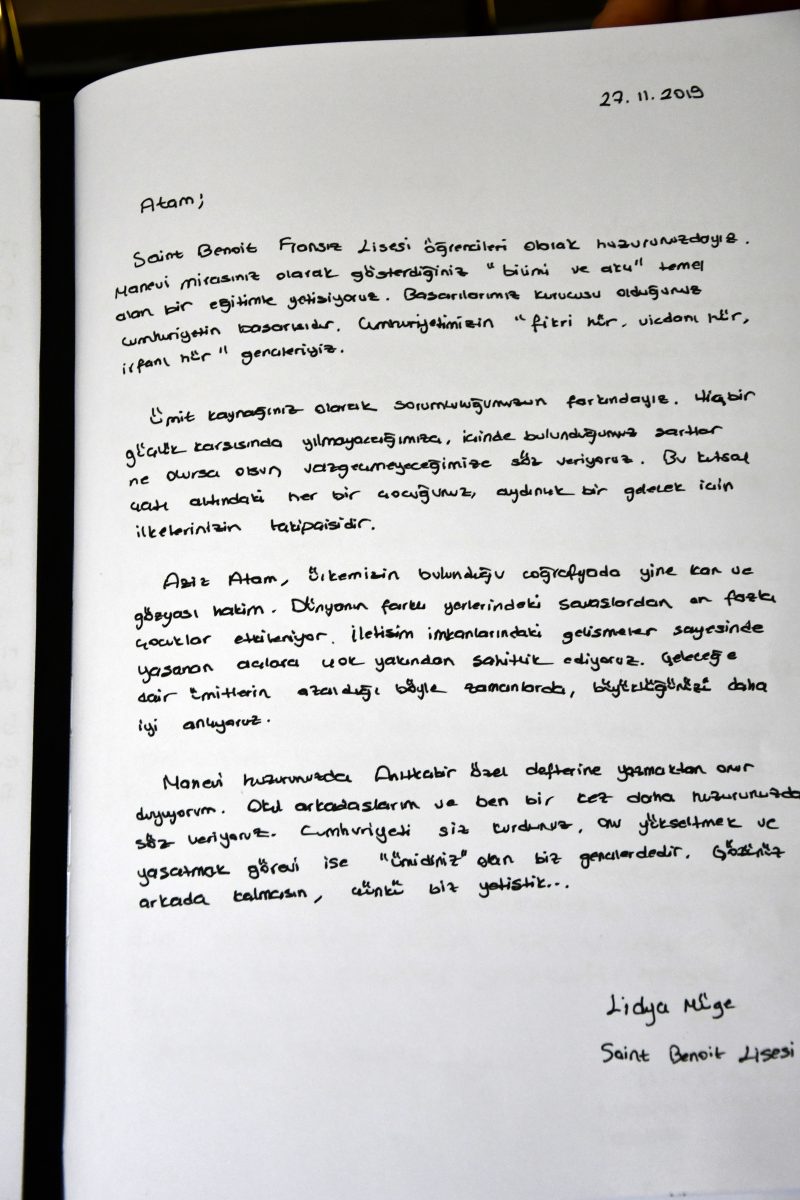 27.11.2019
Atam;
Saint Benoit Fransız Lisesi öğrencileri olarak huzurunuzdayız.
Manevi mirasınız olarak gösterdiğiniz "bilimi ve aklı" temel
alan bir eğitimle yetişiyoruz. Başarılarımız kurucusu olduğunuz
cumhuriyetin başarısıdır. Cumhuriyetimizin "fikri hür, vicdanı hür,
irfanı hür" gençleriyiz.
Ümit kaynağınız olarak sorumluluğumuzun farkındayız. Hiçbir
güçlük karşısında yılmayacağımıza, içinde bulunduğumuz şartlar
ne olursa olsun vazgeçmeyeceğimize söz veriyoruz. Bu kutsal
çatı altındaki her bir çocuğunuz, aydınlık bir gelecek için
ilkelerinizin takipçisidir.
Aziz Atam, ülkemizin bulunduğu coğrafyada yine kan ve
gözyaşı hakim. Dünyanın farklı yerlerindeki savaşlardan en fazla
çocuklar etkileniyor. İletişim imkanlarındaki gelişmeler sayesinde
yaşanan acılara çok yakından şahitlik ediyoruz. Geleceğe
dair ümitlerin azaldığı böyle zamanlarda, büyüklüğünüzü daha
iyi anlıyoruz.
Manevi huzurunuzda Anıtkabir özel defterine yazmaktan onur
duyuyorum. Okul arkadaşlarım ve ben bir kez daha huzurunuzda
söz veriyoruz. Cumhuriyeti siz kurdunuz, onu yükseltmek ve
yaşatmak görevi ise "ümidiniz" olan biz gençlerdedir. Gözünüz
arkada kalmasın, çünkü biz yetiştik...
Lidya Müge
Saint Benoit Lisesi